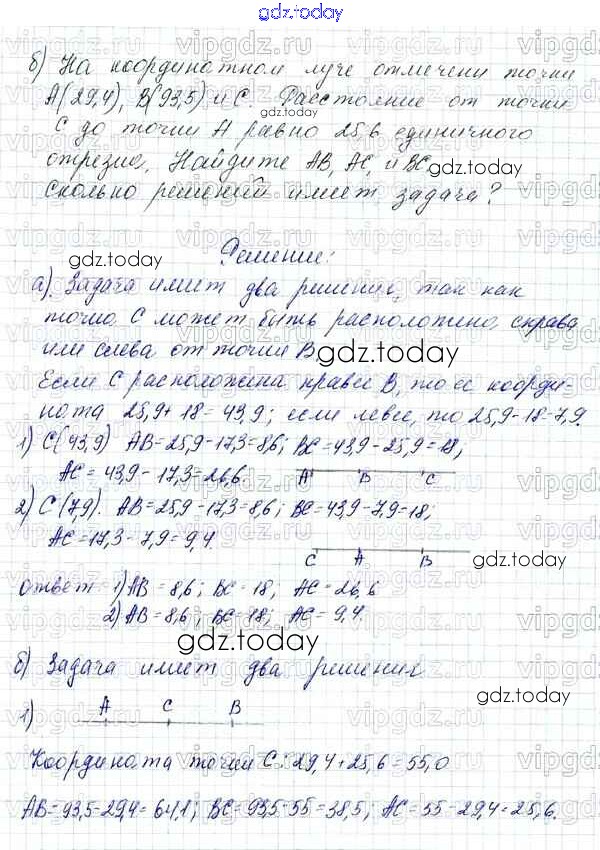 gdz.today
б) На координатном луче отмечены точки
А(29,4), В(93,5) и С. Расстояние от точки
С до точки А равно 25,6 единичного
отрезка. Найдите АВ, АС, и ВС. gdz.today
Сколько решений имеет задача?
gdz.today Решение:
а). Задача имеет два решения, так как
точка С может быть расположена справа
или слева от точки В. gdz.today
Если С расположена правее В, то ее коорди-
ната 25,9+18=43,9; если левее, то 25,9-18=7,9.
1) С(43,9) АВ=25,9-17,3=8,6; ВС=43,9-25,9=18;
АС=43,9-17,3=26,6.
А В С
2) С(7,9). АВ=25,9-17,3=8,6; ВС=43,9-7,9=18;
АС=17,3-7,9=9,4.
С А В
gdz.today
ответ: 1) АВ=8,6; ВС=18, АС=26,6
2) АВ=8,6; ВС=18; АС=9,4.
gdz.today
б) Задача имеет два решения
1) А С В
gdz.today
Координата точки С: 29,4+25,6=55,0
АВ=93,5-29,4=64,1; ВС=93,5-55=38,5; АС=55-29,4=25,6.